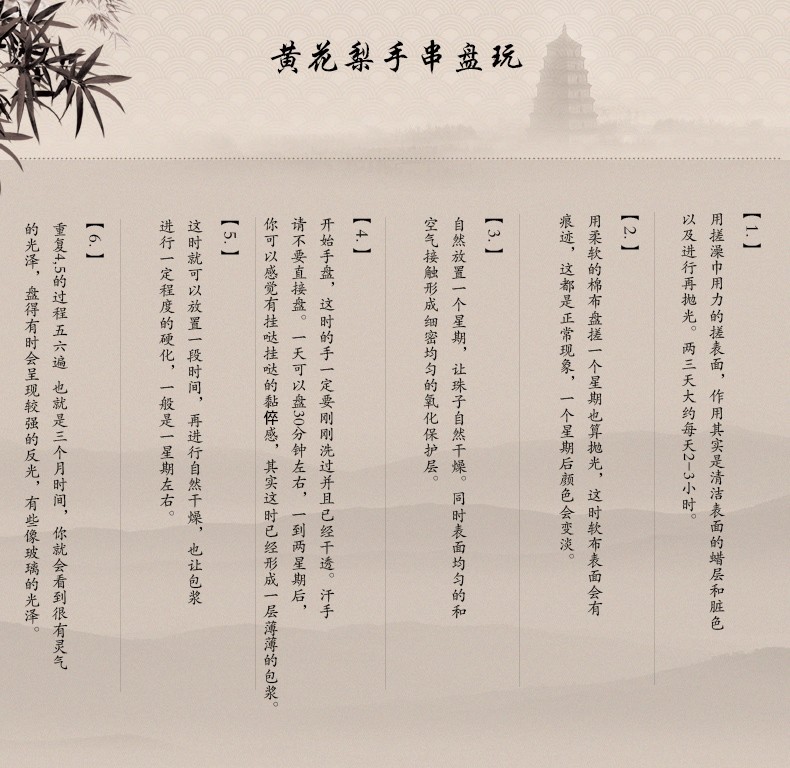 黄花梨手串盘玩
【1.】
用搓澡巾用力的搓表面，作用其实是清洁表面的蜡层和脏色
以及进行再抛光。两三天大约每天2-3小时。
【2.】
用柔软的棉布盘搓一个星期也算抛光，这时软布表面会有
痕迹，这都是正常现象，一个星期后颜色会变淡。
【3.】
自然放置一个星期，让珠子自然干燥。同时表面均匀的和
空气接触形成细密均匀的氧化保护层。
【4.】
开始手盘，这时的手一定要刚刚洗过并且已经干透。汗手
请不要直接盘。一天可以盘30分钟左右，一到两星期后，
你可以感觉有挂哒挂哒的黏倅感，其实这时已经形成一层薄薄的包浆。
【5.】
这时就可以放置一段时间，再进行自然干燥，也让包浆
进行一定程度的硬化，一般是一星期左右。
【6.】
重复4,5的过程五六遍 也就是三个月时间，你就会看到很有灵气
的光泽，盘得有时会呈现较强的反光，有些像玻璃的光泽。